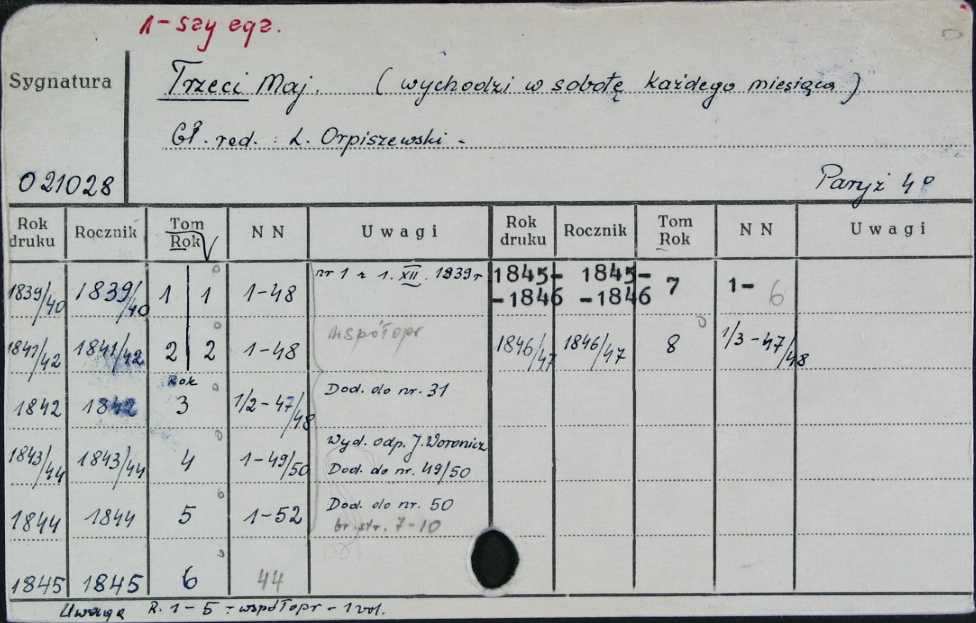 1-szy egz.
Sygnatura
Trzeci Maj. (wychodzi w sobotę każdego miesiąca)
Gł. red. : L. Orpiszewski -
021028
Paryż 4°
Rok druku Rocznik Tom Rok NN Uwagi Rok druku Rocznik Tom Rok NN Uwagi
1839/40 1839/40 1 1 1-48 nr 1 z 1. XII. 1839r 1845--1846 1845--1846 7 1- 6
1841/42 1841/42 2 2 1-48 współopr 1846/47 1846/47 8 1/3-47/48
Rok
1842 1842 3 1/2-47/48 Dod. do nr. 31
1843/44 1843/44 4 1-49/50 Wyd. odp. J. Woronicz
Dod. do nr. 49/50
1844 1844 5 1-52 Dod. do nr. 50
br. str. 7-10
1845 1845 6 44
Uwaga R. 1-5 - współopr - 1 vol.